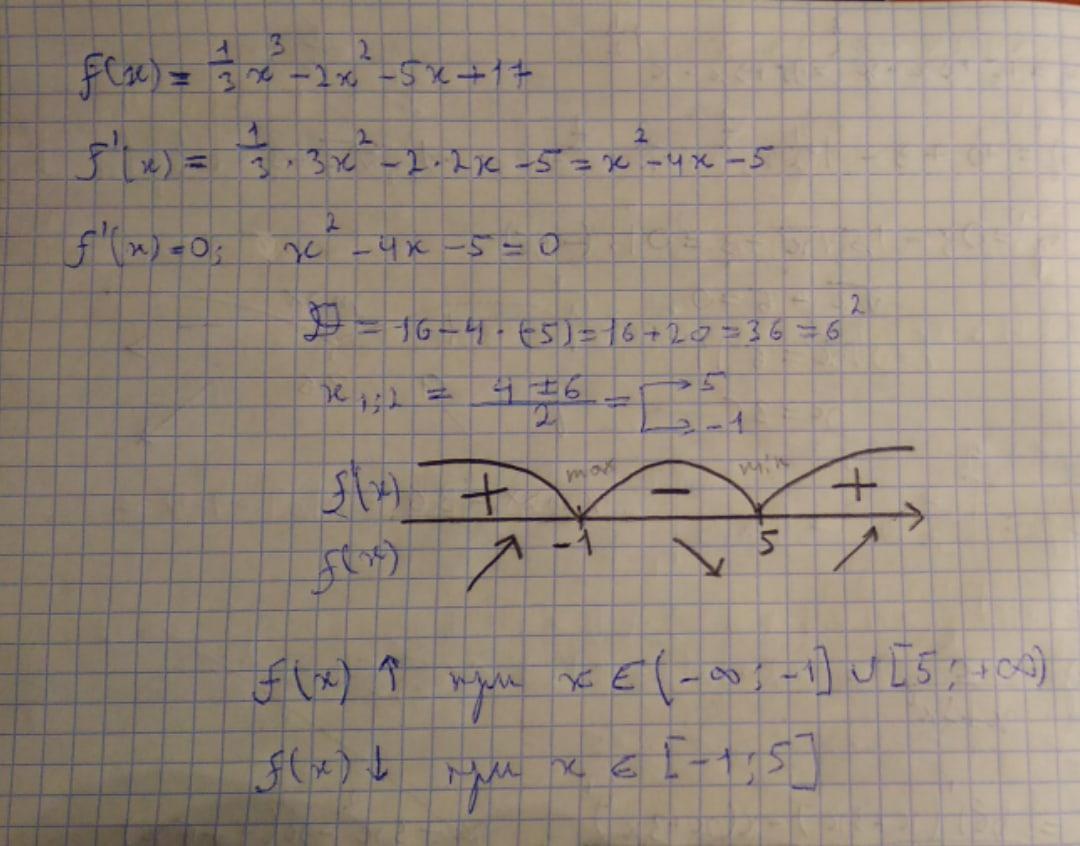 f(x) = 1/3 x³ - 2x² - 5x + 17
f'(x) = 1/3 · 3x² - 2 · 2x - 5 = x² - 4x - 5
f'(x) = 0; x² - 4x - 5 = 0
D = 16 - 4 · (-5) = 16 + 20 = 36 = 6²
x₁;₂ = (4 ± 6)/2 = → 5
→ -1
f'(x) + max - min +
-1 5
f(x)
f(x) ↑ при x ∈ (-∞; -1] ∪ [5; +∞)
f(x) ↓ при x ∈ [-1; 5]